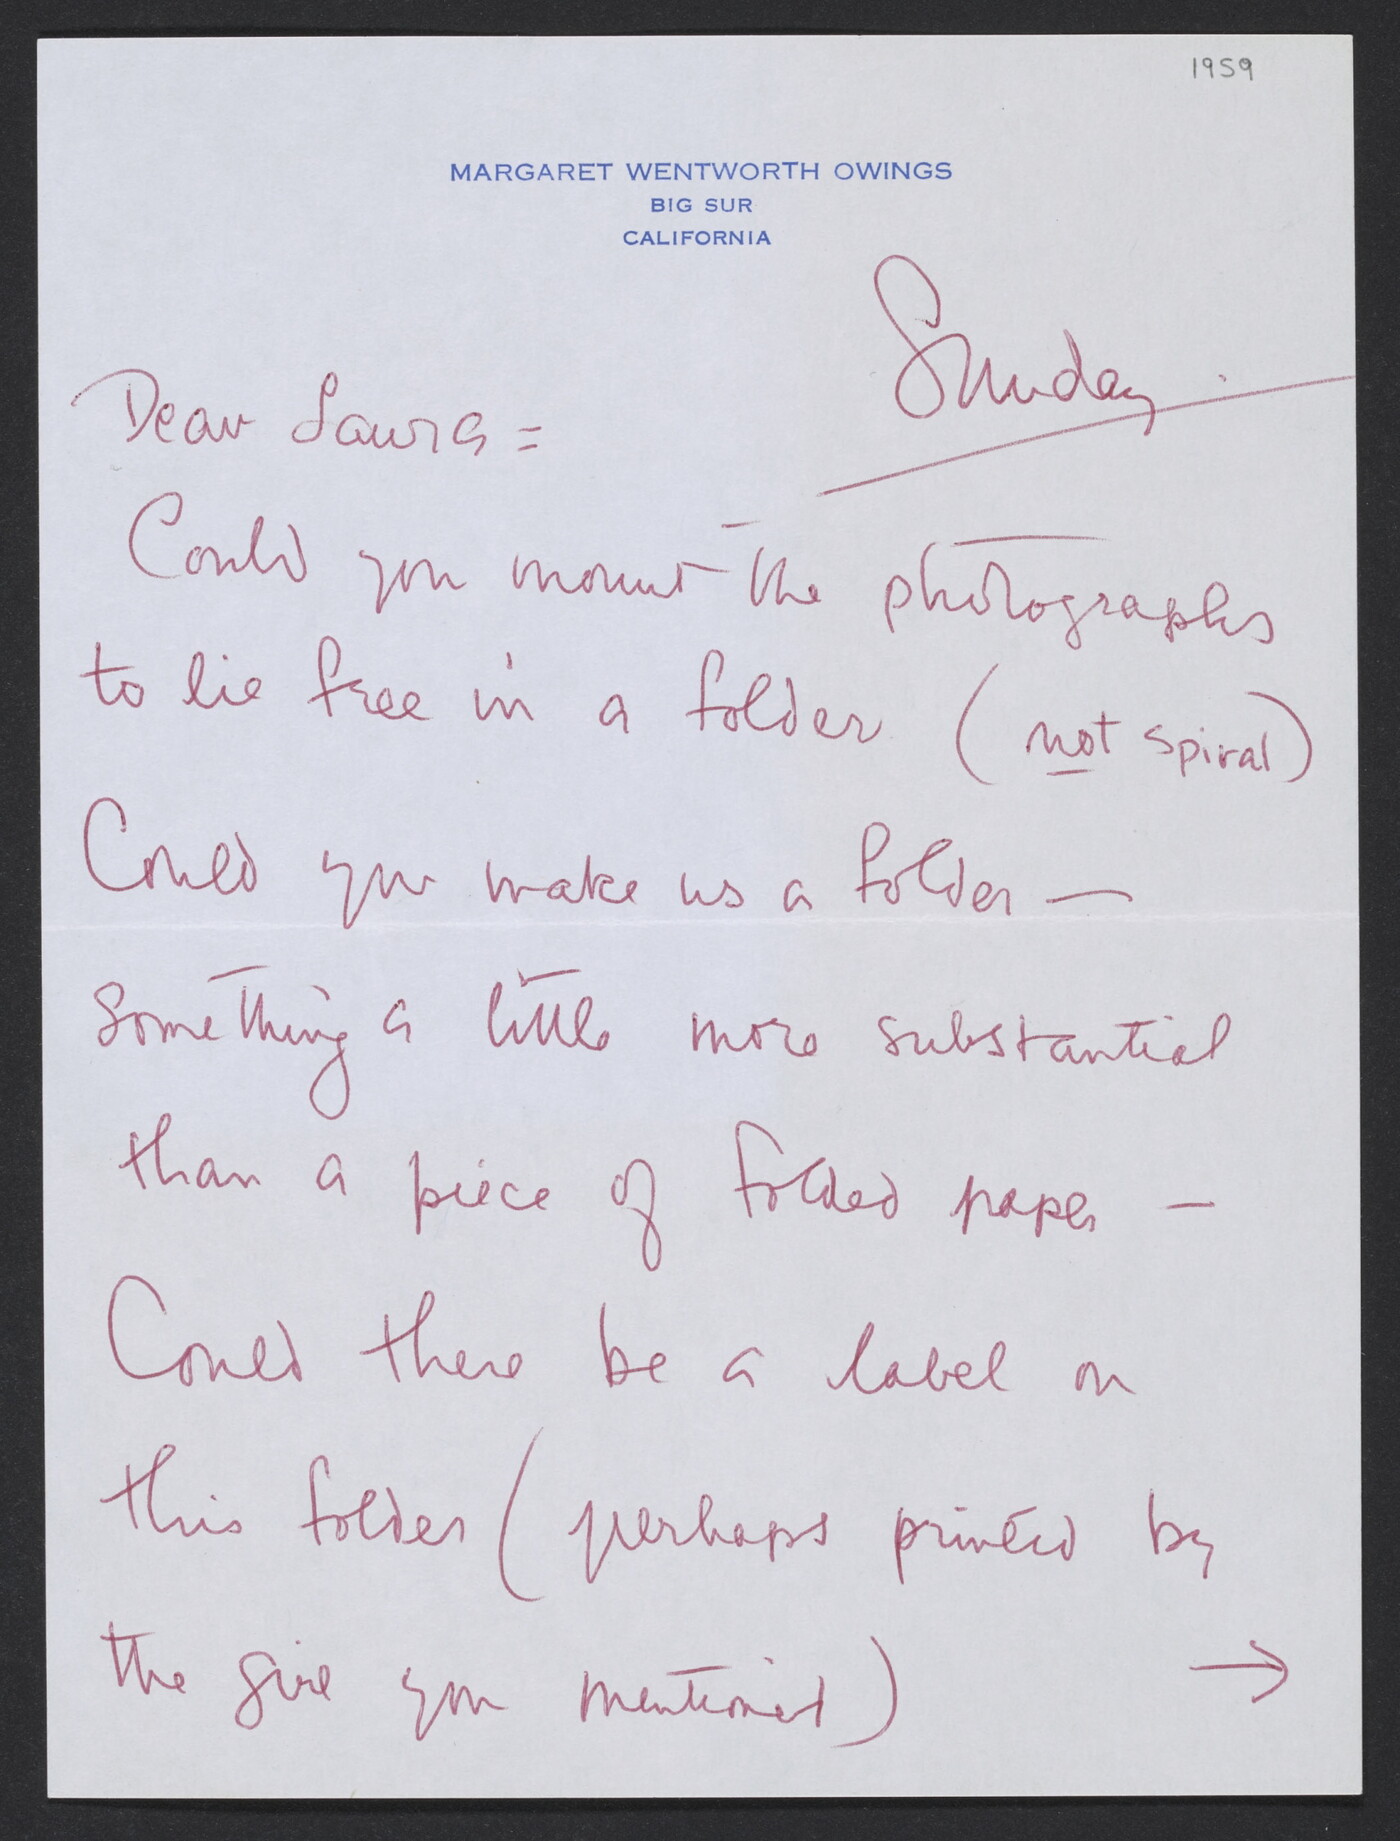 1959
MARGARET WENTWORTH OWINGS
BIG SUR
CALIFORNIA
Sunday.
Dear Laura =
Could you mount the photographs
to lie free in a folder (not spiral)
Could you make us a folder —
Something a little more substantial
than a piece of folded paper —
Could there be a label on
this folder (perhaps printed by
the girl you mentioned) →